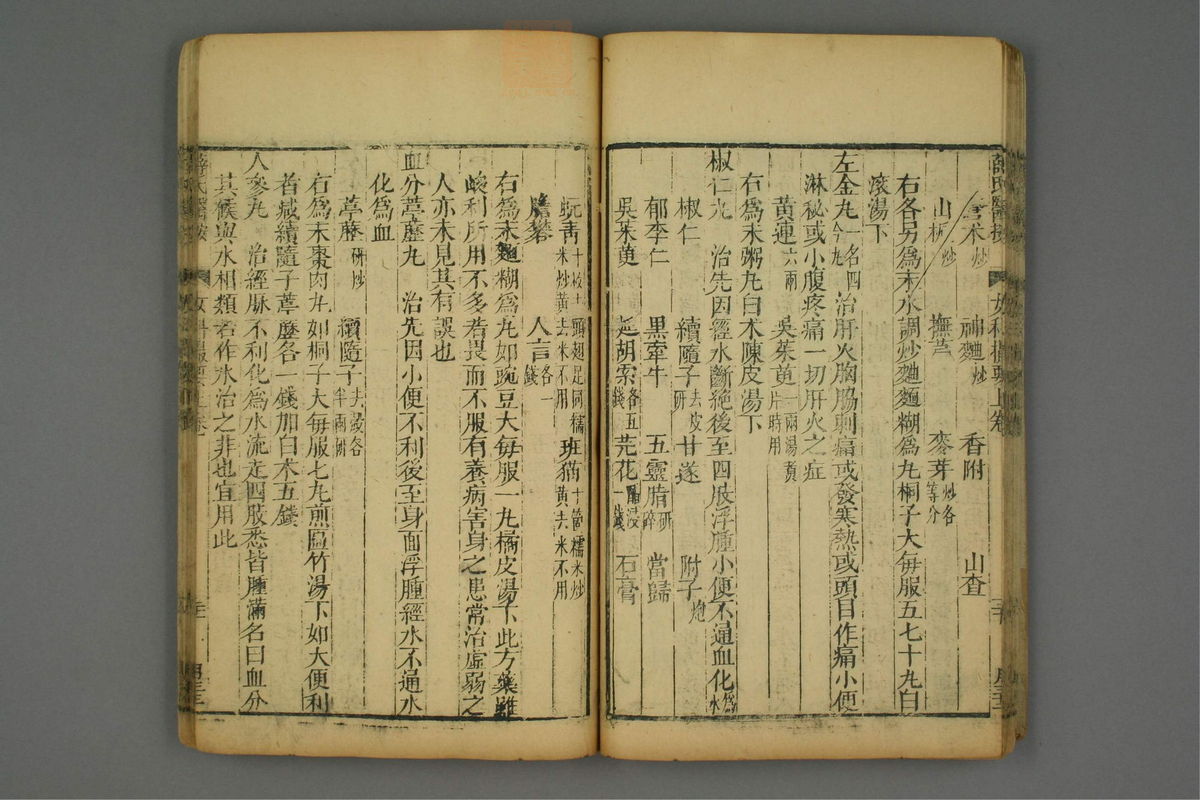 薛氏醫按 女科撮要上卷
莪朮炒 神麯炒 香附 山查
山梔炒 撫芎 麥芽炒各等分
右各另爲末水調炒麯麵糊爲丸桐子大每服五七十丸白
滾湯下
左金丸一名四令丸 治肝火胸脇刺痛或發寒熱或頭目作痛小便
淋秘或小腹疼痛一切肝火之症
黃連六兩 吳茱萸一兩湯煑片時用
右爲末粥丸白朮陳皮湯下
椒仁丸 治先因經水斷絶後至四肢浮腫小便不通血化爲水
椒仁 續隨子去皮研 甘遂 附子炮
郁李仁 黑牽牛 五靈脂研碎 當歸
吳茱萸 延胡索各五錢 芫花醋浸一錢 石膏
蚖青十枚去頭翅足同糯米炒黃去米不用 班猫十箇糯米炒黃去米不用
膽礬 人言各一錢
右爲末麵糊爲丸如豌豆大每服一丸橘皮湯下此方藥雖
峻利所用不多若畏而不服有養病害身之患常治虛弱之
人亦未見其有誤也
血分葶藶丸 治先因小便不利後至身面浮腫經水不通水
化爲血
葶藶研炒 續隨子去殼各半兩研
右爲末棗肉丸如桐子大每服七丸煎扁竹湯下如大便利
者减續隨子葶藶各一錢加白朮五錢
人參丸 治經脉不利化爲水流走四肢悉皆腫滿名曰血分
其候與水相類若作水治之非也宜用此
薛氏醫按 女科撮要上卷